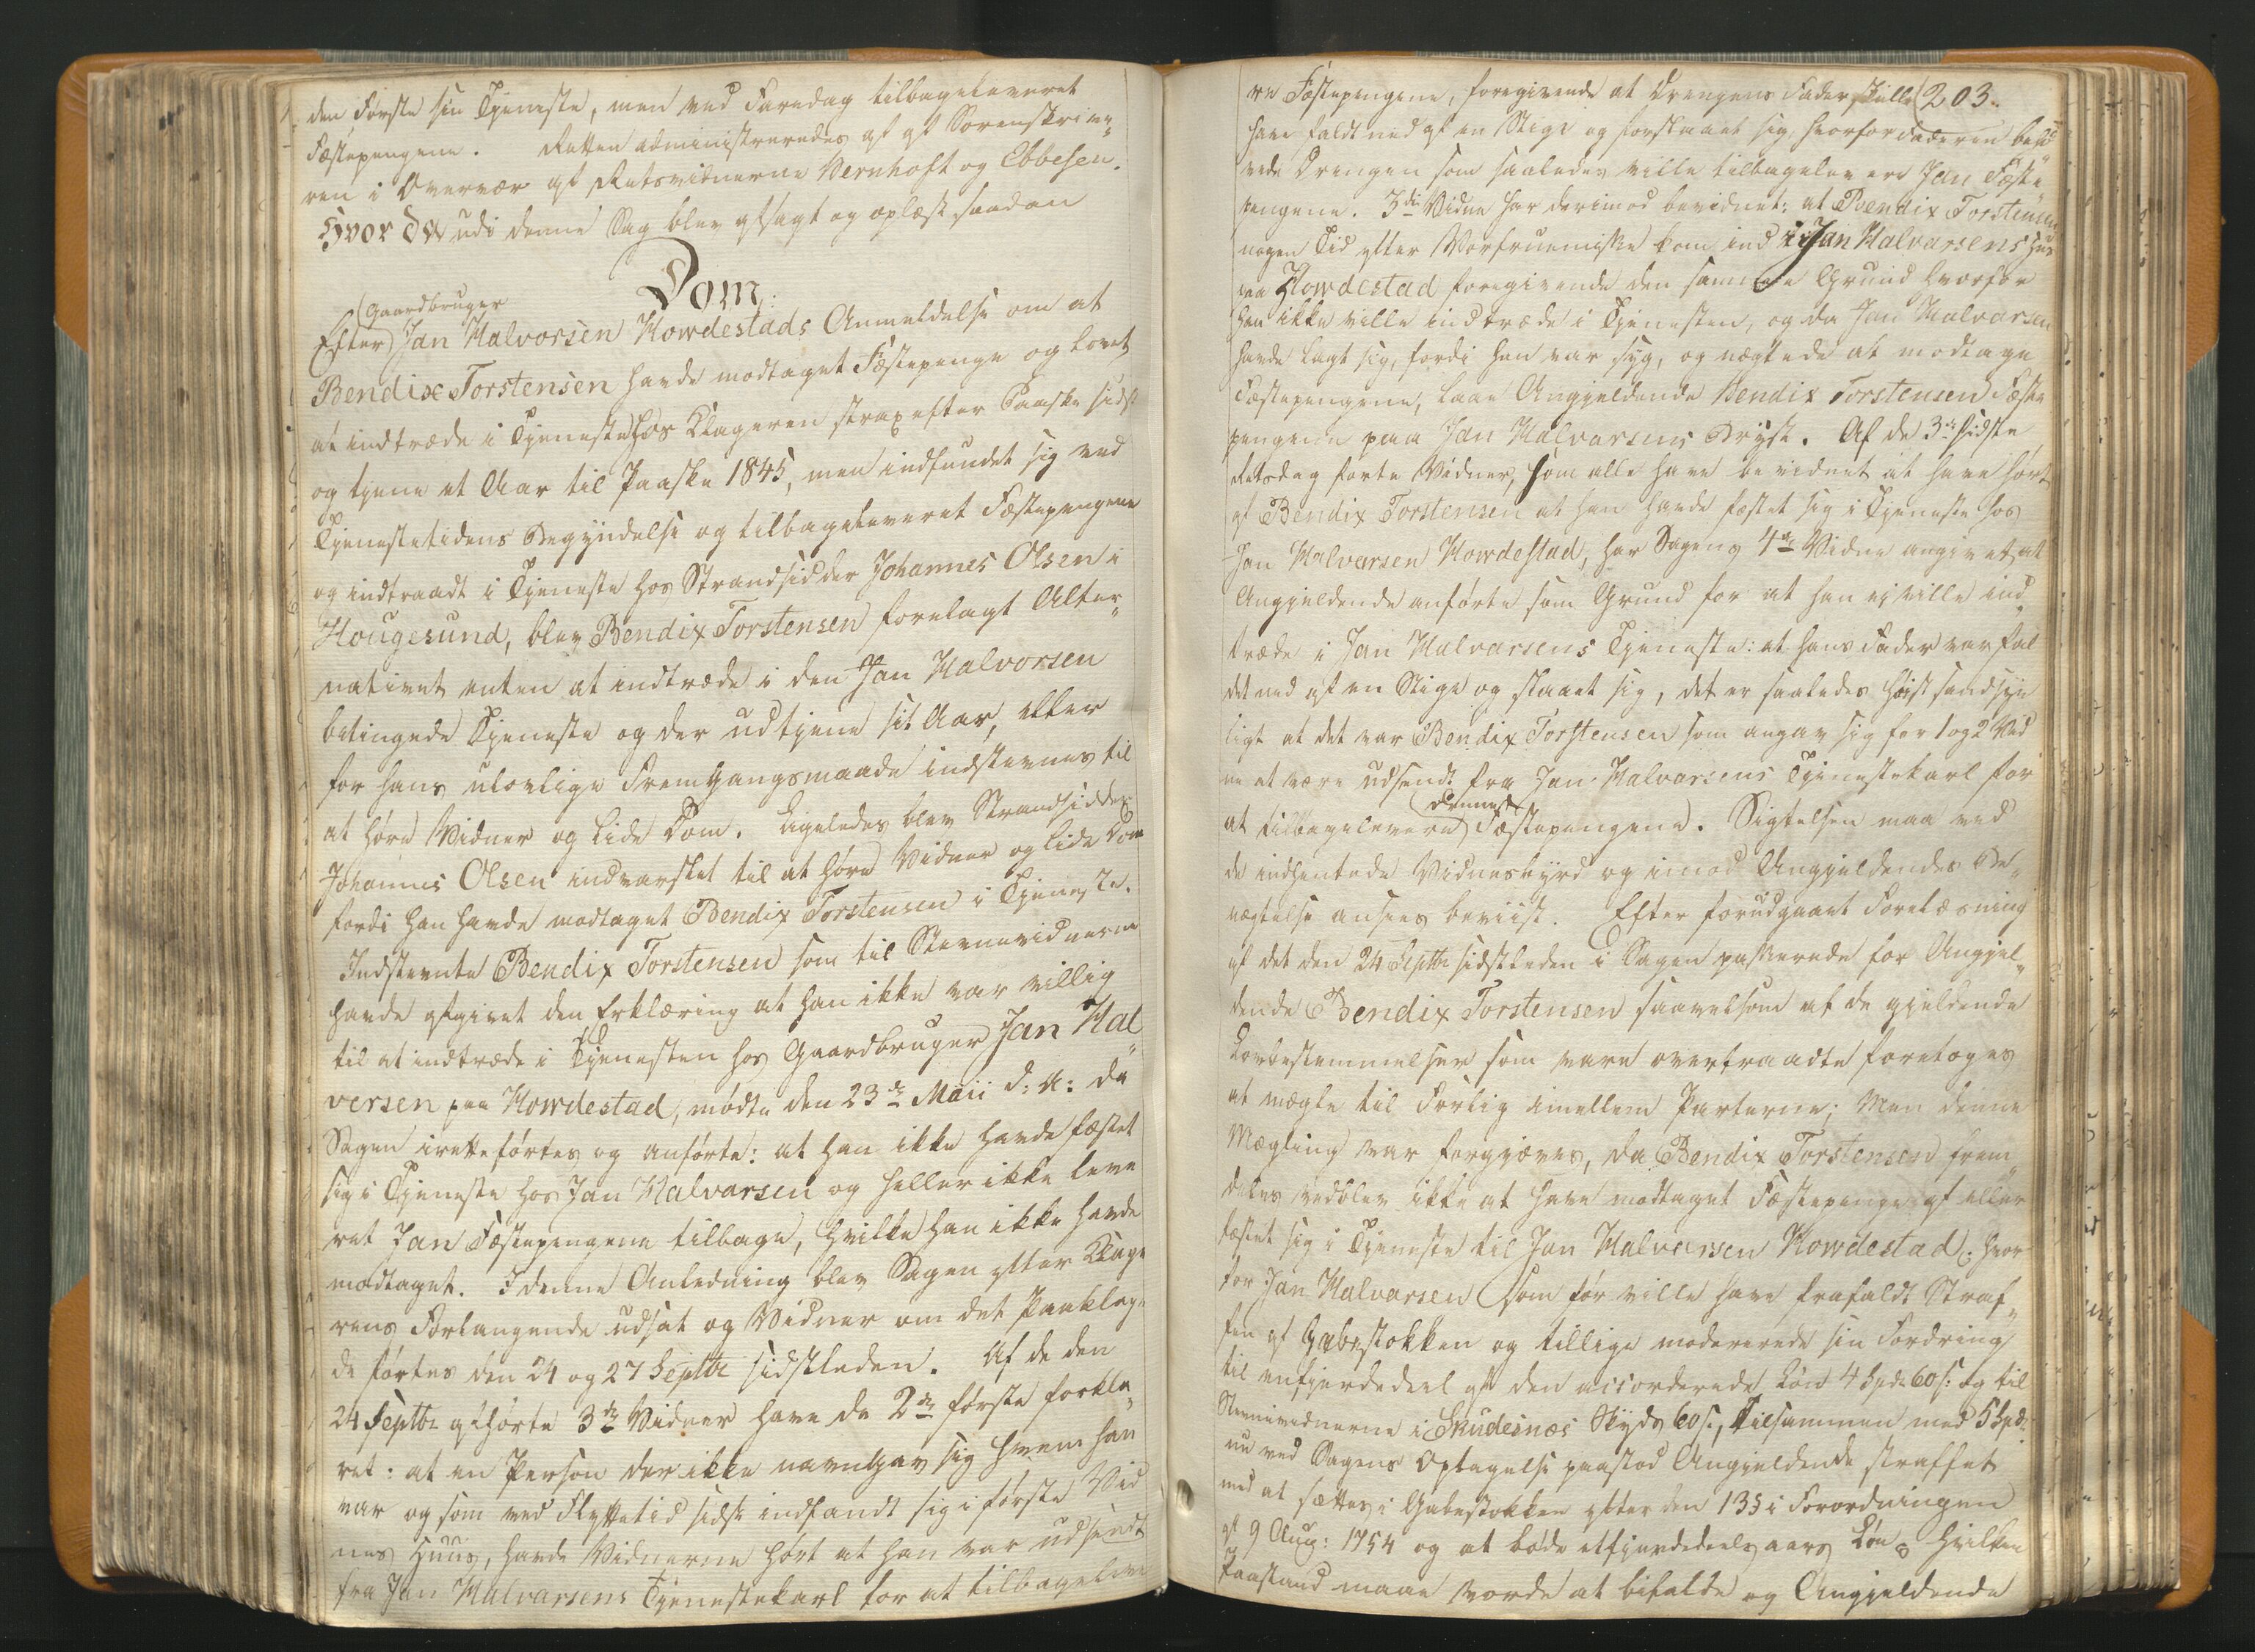 den første sin Tjeneste, men ved Faredag tilbageleveret
Fæstepengene. Retten administreredes af gl Sorenskrive„
ren i Overvær af Retsvidnerne Vernhoft og Ebbesen.
Hvor da udi denne Sag blev afsagt og oplæst saadan
Dom:
Gaardbruger
Efter Jan Halvorsen Howdestads Anmeldelse om at
Bendix Torstensen havde modtaget Fæstepenge og lovet
at indtræde i Tjeneste hos Klageren strax efter Paaske sidst
og tjene et Aar til Paaske 1845, men indfundet sig ved
Tjenestetidens Begyndelse og tilbageleveret Fæstepengene
og indtraadt i Tjeneste hos Strandsidder Johannes Olsen i
Hougesund, blev Bendix Torstensen forelagt Alter„
nativet enten at indtræde i den Jan Halvorsen
betingede Tjeneste og der udtjene sit Aar, eller
for hans ulovlige Fremgangsmaade indstevnes til
at høre Vidner og lide Dom. Ligeledes blev Strandsidder
Johannes Olsen indvarslet til at høre Vidner og lide Dom
fordi han havde modtaget Bendix Torstensen i Tjeneste.
Indstevnte Bendix Torstensen som til Stevnevidnerne
havde afgivet den Erklæring at han ikke var villig
til at indtræde i Tjenesten hos Gaardbruger Jan Hal„
versen paa Howdestad, mødte den 23de Maii d: A: da
Sagen iretteførtes og anførte: at han ikke havde fæstet
sig i Tjeneste hos Jan Halvarsen og heller ikke leve
ret Jan Fæstepengene tilbage, hvilke han ikke havde
modtaget. I denne Anledning blev Sagen efter Klage
rens Forlangende udsat og Vidner om det Paaklage
de førtes den 24 og 27 Septbr sidstleden. Af de den
24 Septbr afhørte 3de Vidner have de 2de første forkla„
ret: at en Person der ikke navngav sig hvem han
var og som ved Flyttetid sidst indfandt sig i første Vid
nes Huus, havde Vidnerne hørt at han var udsendt
fra Jan Halvarsens Tjenestekarl for at tilbageleve
203.
re Fæstepengene, foregivende at Drengens Fader skulle
have faldt ned af en Stige og forslaaet sig, hvorfor Faderen behø
vede Drengen som saaledes ville tilbagelevere Jan Fæste„
pengene. 3die Vidne har derimod bevidnet: at Bendix Torstensen
nogen Tid efter Vorfruemisse kom ind i Jan Halvarsens Huus
paa Howdestad foregivende den samme Grund hvorfor
han ikke ville indtræde i Tjenesten, og da Jan Halvarsen
havde lagt sig, fordi han var syg, og nægtede at modtage
Fæstepengene, laae Angjeldende Bendix Torstensen Fæste
pengene paa Jan Halvarsens Bryst. Af de 3de sidste
Retsdag førte Vidner, som alle have bevidnet at have hørt
af Bendix Torstensen at han havde fæstet sig i Tjeneste hos
Jan Halvarsen Howdestad, har Sagens 4de Vidne angivet, at
Angjeldende anførte som Grund for at han ej ville ind„
træde i Jan Halvarsens Tjeneste: at hans Fader var fal
det ned af en Stige og slaaet sig, det er saaledes høist sandsyn
ligt at det var Bendix Torstensen som angav sig for 1 og 2 Vid
ne at være udsendt fra Jan Halvarsens Tjenestekarl for
dennes
at tilbagelevere Fæstepengene. Sigtelsen maa ved
de indhentede Vidnesbyrd og imod Angjeldendes Be„
nægtelse ansees beviist. Efter forudgaaet Forelæsning
af det den 24 Septbr sidstleden i Sagen passerede for Angjel„
dende Bendix Torstensen saavelsom af de gjeldende
Lovbestemmelser som vare overtraadte foretoges
at mægle til Forlig imellem Parterne; Men denne
Mægling var forgjæves, da Bendix Torstensen frem„
deles vedblev ikke at have modtaget Fæstepenge af eller
fæstet sig i Tjeneste til Jan Halvarsen Howdestad; hvor
for Jan Halvarsen som før ville have frafaldt Straf„
fen af Gabestokken og tillige modererede sin Fordring
til en fjerdedeel af den accorderede Løn 4 Spd. 60 s: og til
Stevnevidnerne i Skudesnæs Skyds 60 s:, tilsammen med 5 Spd:
nu ved Sagens Optagelse paastod Angjeldende straffet
med at sættes i Gabestokken efter den 13 § i Forordningen
af 9 Aug: 1754 og at bøde et fjerdedeels aars Løn. Hvilken
Paastand maae vorde at bifalde og Angjeldende